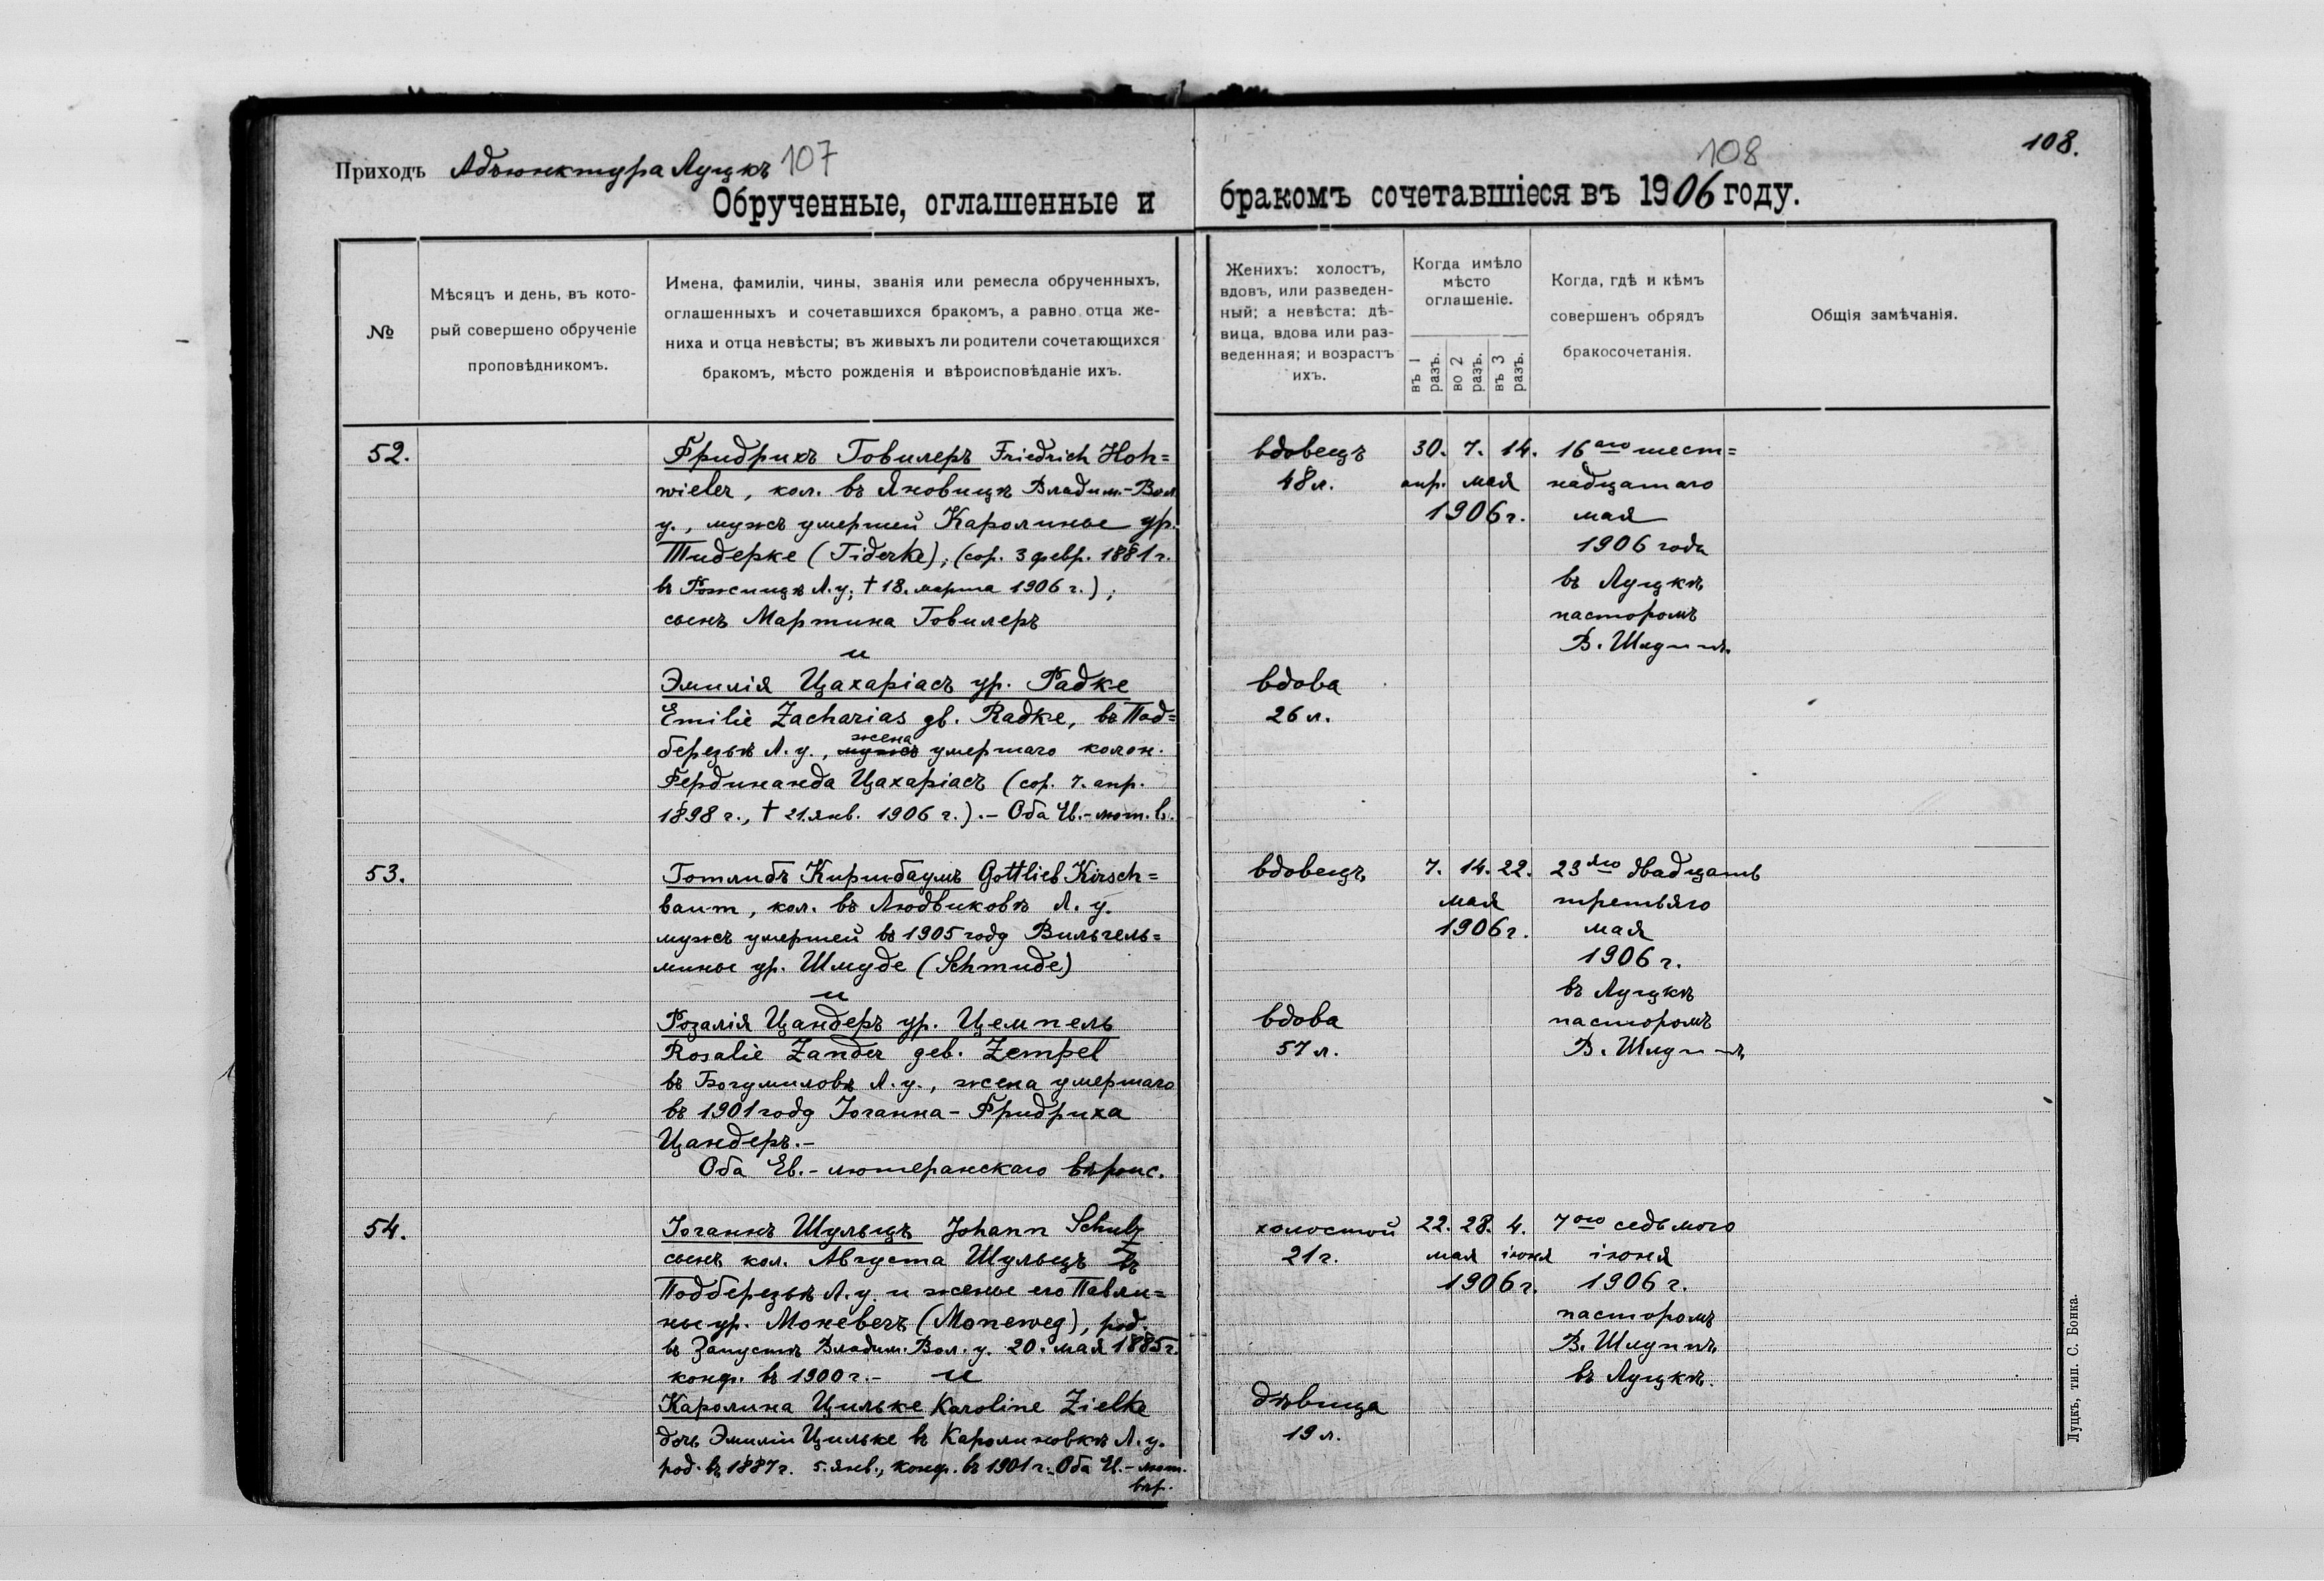 Приходъ Адъюнктура Луцкъ 107
108
108.
Обрученные, оглашенные и бракомъ сочетавшіеся въ 1906 году.
№
Мѣсяцъ и день, въ кото-
рый совершено обрученіе
проповѣдникомъ.
Имена, фамиліи, чины, званія или ремесла обрученныхъ,
оглашенныхъ и сочетавшихся бракомъ, а равно отца же-
ниха и отца невѣсты; въ живыхъ ли родители сочетающихся
бракомъ, мѣсто рожденія и вѣроисповѣданіе ихъ.
Женихъ: холостъ,
вдовъ, или разведен-
ный; а невѣста: дѣ-
вица, вдова или раз-
веденная; и возрастъ
ихъ.
Когда имѣло
мѣсто
оглашеніе.
въ 1 разъ.
во 2 разъ.
въ 3 разъ.
Когда, гдѣ и кѣмъ
совершенъ обрядъ
бракосочетанія.
Общія замѣчанія.
52.
Фридрихъ Говилеръ Friedrich Hoh=
wieler, кол. въ Яновицѣ Владим.-Вол.
у., мужъ умершей Каролины ур.
Тидерке (Tiderke), (сор. 3 февр. 1881 г.
въ Рожищѣ Л. у; † 18. марта 1906 г.);
сынъ Мартина Говилеръ
и
Эмилія Цахаріасъ ур. Радке
Emilie Zacharias gb. Radke, въ Под=
березьѣ Л. у., мужъ жена умершаго колон.
Фердинанда Цахаріасъ (сор. 7. апр.
1898 г., † 21. янв. 1906 г.).- Оба Ев.-лют. в.
вдовецъ
48 л.
вдова
26 л.
30. 7. 14.
апр. мая
1906 г.
16аго шест=
надцатаго
мая
1906 года
въ Луцкѣ
пасторомъ
В. Шлуппъ.
53.
Готлибъ Киршбаумъ Gottlieb Kirsch=
baum, кол. въ Людвиковѣ Л. у.
мужъ умершей въ 1905 году Вильгель=
мины ур. Шмуде (Schmude)
и
Розалія Цандеръ ур. Цемпель
Rosalie Zander geb. Zempel
въ Богумиловѣ Л. у., жена умершаго
въ 1901 году Іоганна-Фридриха
Цандеръ.-
Оба Ев.-лютеранскаго вѣроис.
вдовецъ
вдова
57 л.
7. 14. 22.
мая
1906 г.
23яго двадцать
третьяго
мая
1906 г.
въ Луцкѣ
пасторомъ
В. Шлуппъ
54.
Іоганнъ Шульцъ Johann Schulz
сынъ кол. Августа Шульцъ въ
Подберезьѣ Л. у. и жены его Павли=
ны ур. Моневегъ (Moneweg), род.
въ Запустѣ Владим. Вол. у. 20. мая 1885 г.
конф. въ 1900 г.- и
Каролина Цильке Karoline Zielke
дочь Эмиліи Цильке въ Каролиновкѣ Л. у.
род. въ 1887 г. 5. янв., конф. въ 1901 г. Оба Ев.-лют.
вѣр.
холостой
21 г.
дѣвица
19 л.
22. 28. 4.
мая іюня
1906 г.
7ого седьмого
іюня
1906 г.
пасторомъ
В. Шлуппъ
въ Луцкѣ.
Луцкъ, тип. С. Бонка.